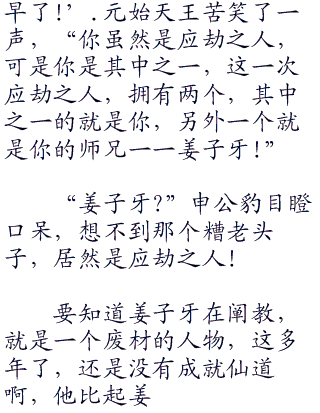 早了!’.元始天王苦笑了一
声，“你虽然是应劫之人，
可是你是其中之一，这一次
应劫之人，拥有两个，其中
之一的就是你，另外一个就
是你的师兄一一姜子牙!”
“姜子牙?”申公豹目瞪
口呆，想不到那个糟老头
子，居然是应劫之人!
要知道姜子牙在阐教，
就是一个废材的人物，这多
年了，还是没有成就仙道
啊，他比起姜